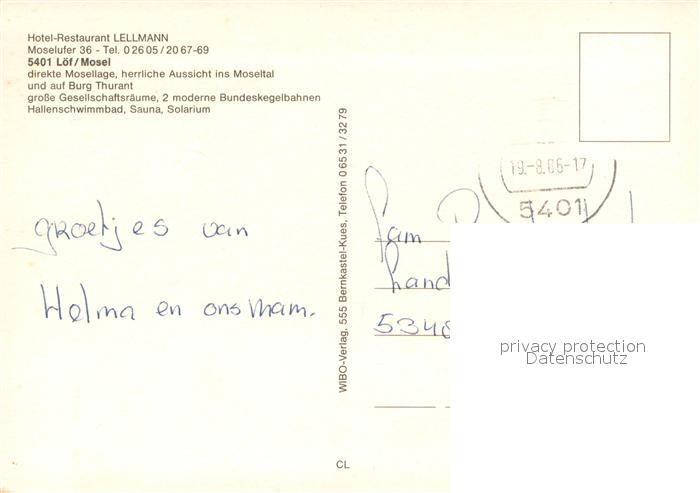 Hotel-Restaurant LELLMANN
Moselufer 36 - Tel. 0 26 05 / 20 67-69
5401 Löf/Mosel
direkte Mosellage, herrliche Aussicht ins Moseltal
und auf Burg Thurant
große Gesellschaftsräume, 2 moderne Bundeskegelbahnen
Hallenschwimmbad, Sauna, Solarium
groetjes van
Helma en ons Mam.
WIBO-Verlag, 555 Bernkastel-Kues, Telefon 0 65 31 / 32 79
CL
19.-8.86-17
5401
Fam
Land
5348
privacy protection
Datenschutz